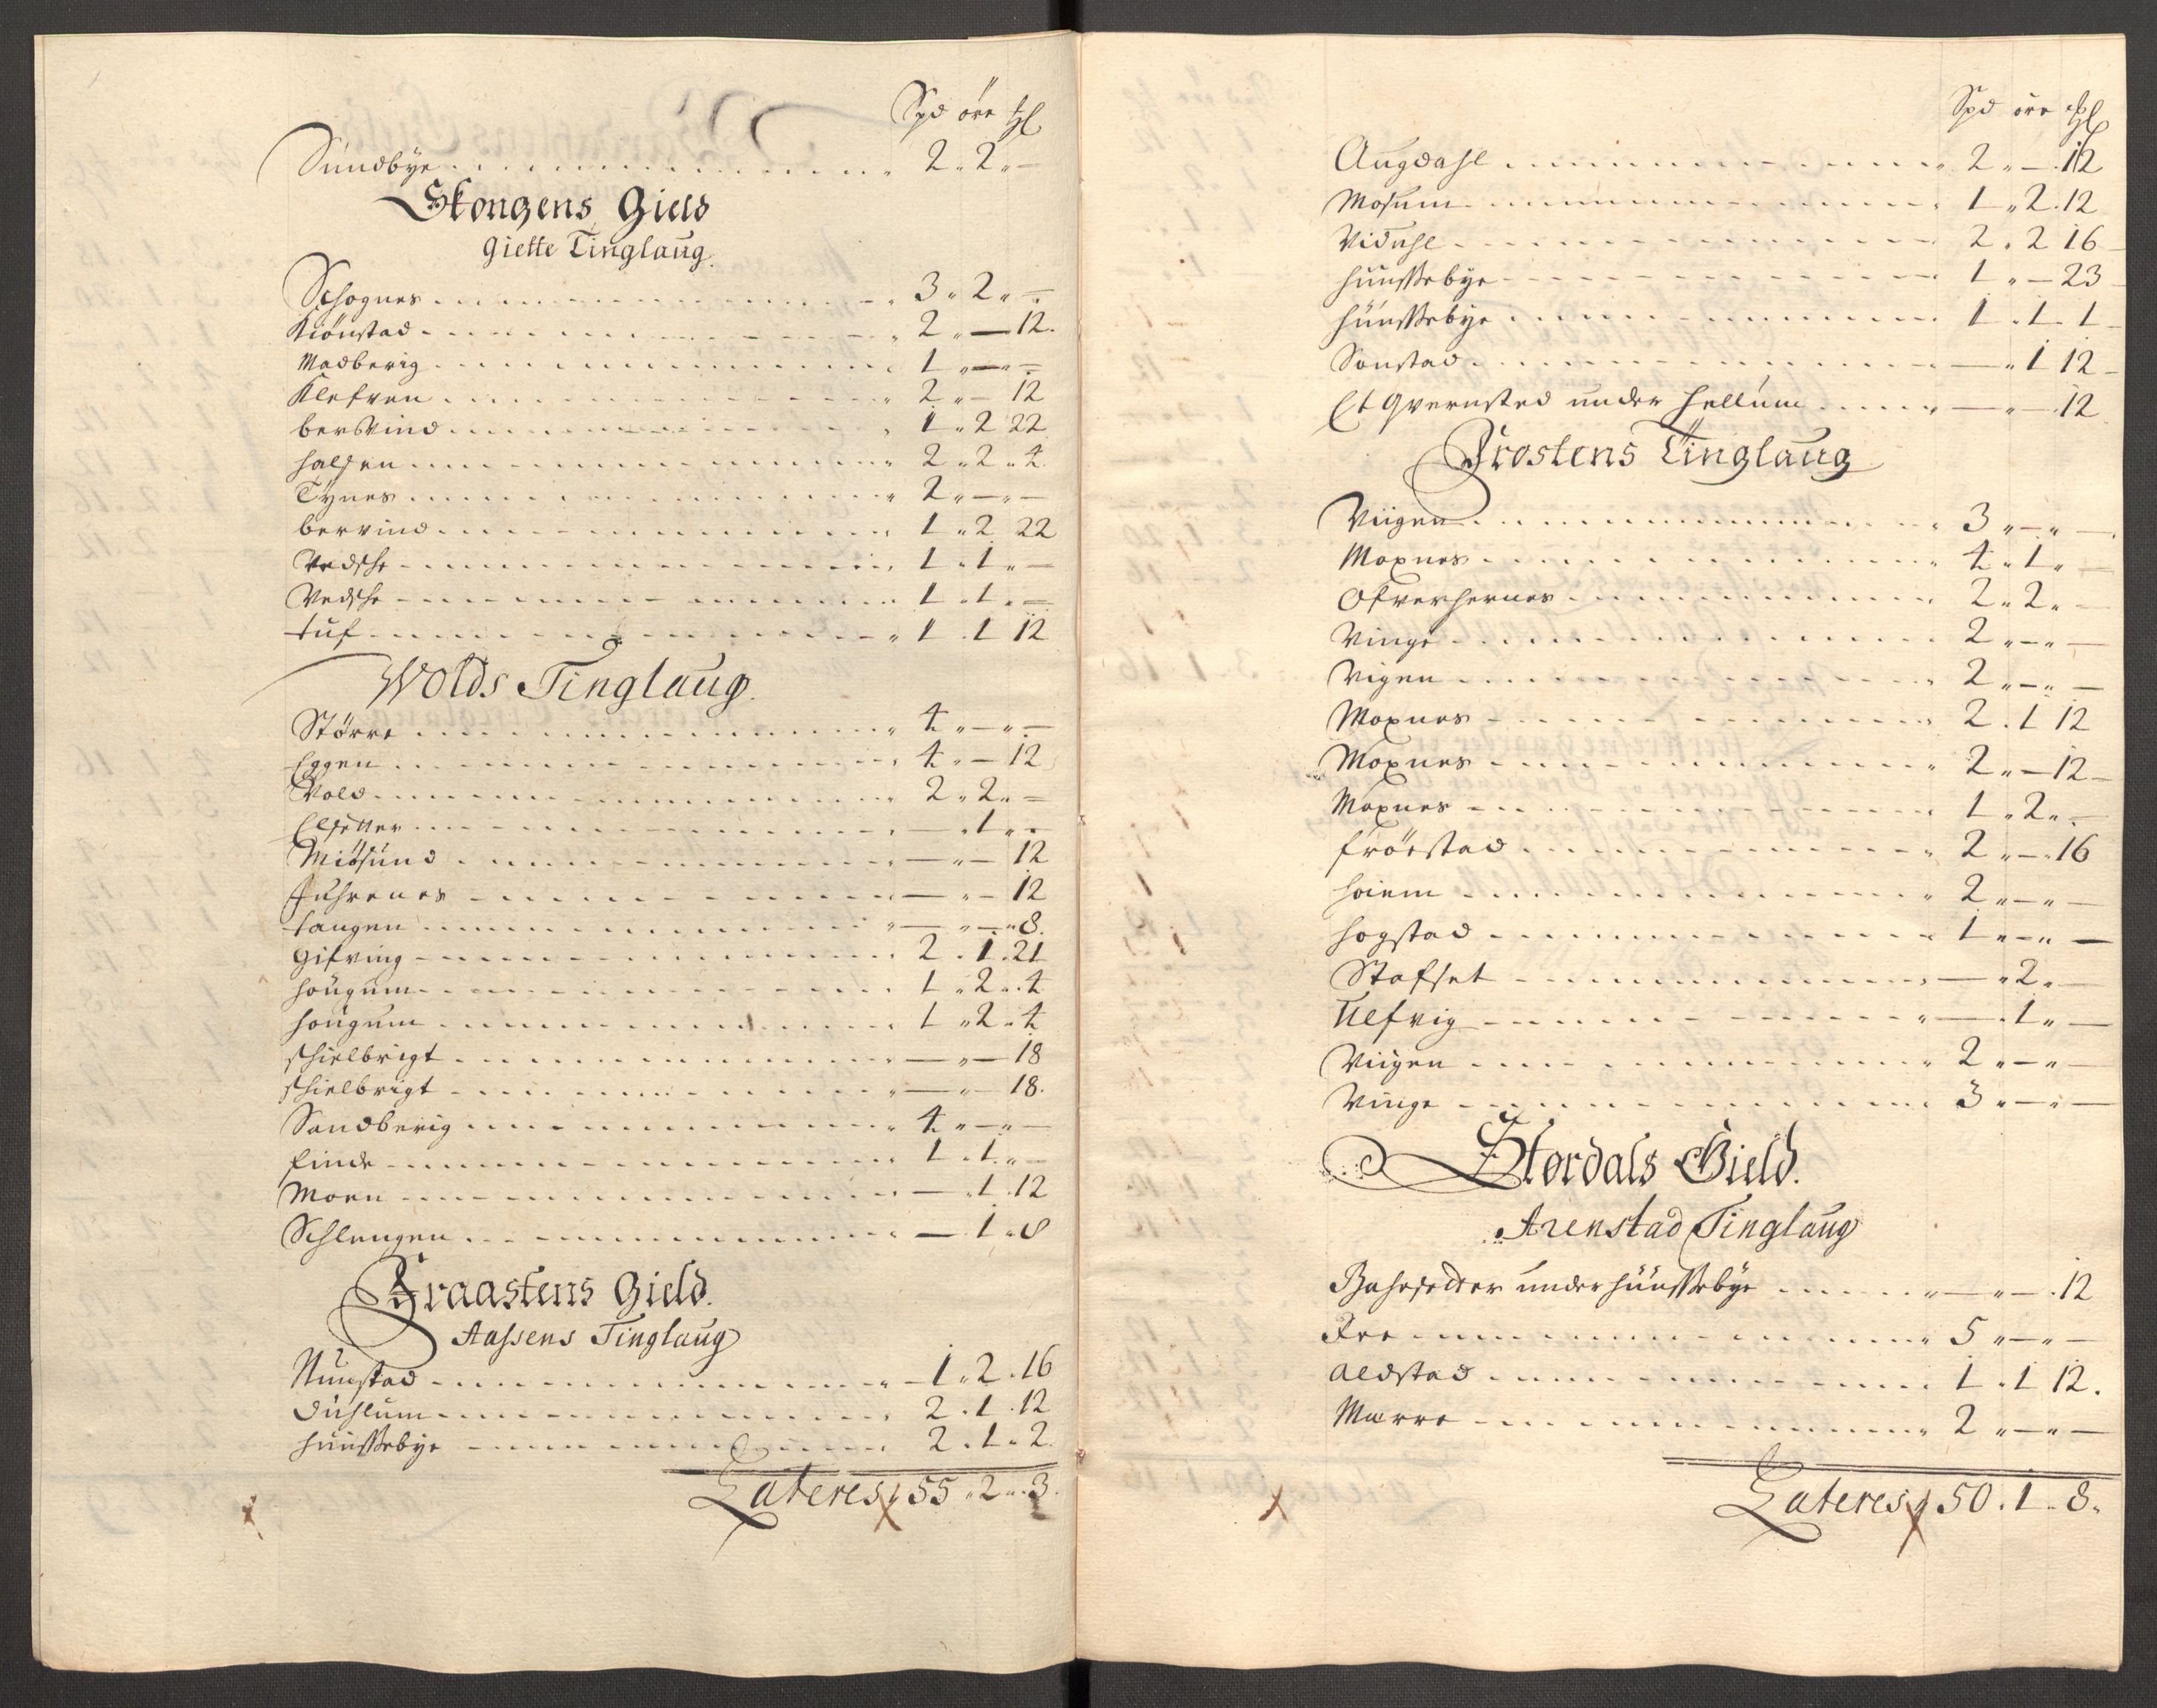 Spd öre
Sundbÿe 2 " 2 " —
Skongens Gield
Giette Tinglaug.
Schognes 3 " 2 " —
Kiönstad 2 " — 12.
Madberig 1 " — " —
Klefven 2 " — 12
berVind 1 " 2 22
halsen 2 " 2 " 4
Tÿnes 2 " — " —
bervind 1 " 2 22
Vedsche 1 " 1 " —
Vedsche 1 " 1 " —
tuf 1 . 1 12
Wolds Tinglaug.
Större 4 " — " —
Eggen 4 " — 12
Vold 2 " 2 " —
Elsetter — " 1 " —
Miösund — " — 12
Fuhrenes — " — 12
tangen — " — " 8.
Gifving 2 . 1 . 21
hougum 1 " 2 " 4
hougum 1 " 2 " 4
schielbrigt — " — 18
schielbrigt — " — 18.
Sandberig 4 " — " —
Einde 1 " 1 " —
Moen — " 1 . 12
Schlengen — 1 " 8
Fraastens Gield.
Aassens Tinglaug
Nunstad 1 " 2 . 16
duhlum 2 . 1 . 12
hunssebÿe 2 . 1 . 2
Lateres 55 . 2 . 3.
Spd öre
Augdahl 2 " — . 12
Mosum 1 " 2 . 12
Viduhl 2 " 2 16
hunssebÿe 1 " — 23
hunssebÿe 1 . 1 . 1
Sonstad — " 1 12
Et Qvernsted under hellum — " — 12
Frostens Tinglaug
Viigen 3 " — " —
Moxnes 4 " 1 " —
Ofverhernes 2 " 2 " —
Vinge 2 " — " —
Vigen 2 " — " —
Moxnes 2 . 1 12
Moxnes 2 " — 12
Moxnes 1 " 2 " —
fröstad 2 " — . 16
hoiem 2 " — " —
hogstad 1 " — " —
Stafset — " 2 " —
Ulfvig — " 1 " —
Viigen 2 " — " —
Vinge 3 " — " —
Stordals Gield.
Arenstad Tinglaug
under hunssebÿe " — " — . 12
Fre 5 " — " —
aldstad 1 . 1 12.
Mærre 2 " — " —
Lateres 50 . 1 . 8.